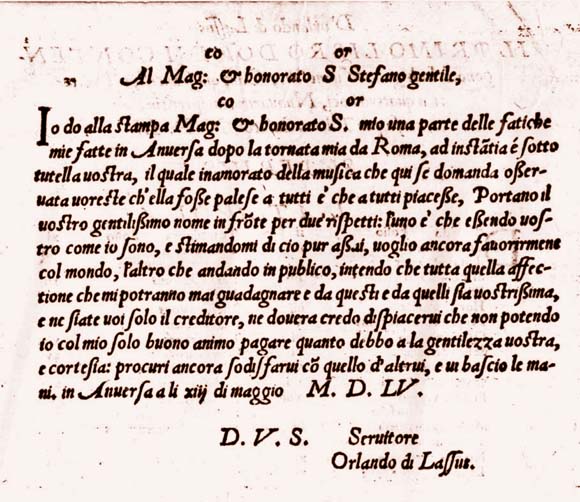 co or
Al Mag: & honorato S Stefano gentile,
co or
Io do alla ſtampa Mag: & honorato S. mio una parte delle fatiche
mie fatte in Anuerſa dopo la tornata mia da Roma, ad inſtãtia é ſotto
tutella uoſtra, il quale inamorato della muſica che qui ſe domanda oſſer-
uata uoreſte ch'ella foſſe paleſe à tutti è che a tutti piaceſſe, Portano il
uoſtro gentiliſſimo nome in frõte per due riſpetti: l'uno è che eſſendo uoſ-
tro come io ſono, e ſtimandomi di cio pur aſſai, uoglio ancora fauorirmene
col mondo, l'altro che andando in publico, intendo che tutta quella affec-
tione che mi potranno mai guadagnare e da queſti e da quelli ſia uoſtriſſima,
e ne ſiate uoi ſolo il creditore, ne douera credo diſpiacerui che non potendo
io col mio ſolo buono animo pagare quanto debbo a la gentilezza uoſtra,
e corteſia: procuri ancora ſodiſfarui cõ quello d'altrui, e ui baſcio le ma-
ni. in Anuerſa a li xiij di maggio M. D. LV.
D. V. S. Seruitore
Orlando di Laſſus.